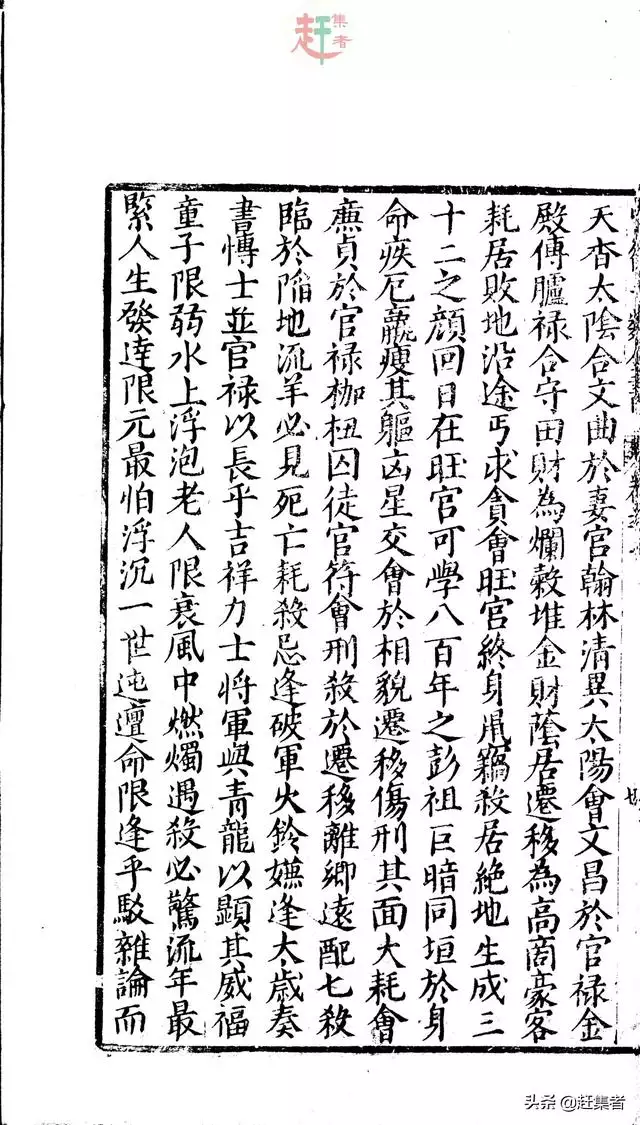 赶集者
天杳太陰合文曲於妻宮翰林清異太陽會文昌於官禄金
殿傳臚禄合守田財為爛穀堆金財蔭居遷移為高商豪客
耗居敗地沿途丐求貪會旺宮終身鼠竊殺居絶地生成三
十二之顔回日在旺宮可學八百年之彭祖巨暗同垣於身
命疾厄羸瘦其軀凶星交會於相貌遷移傷刑其面大耗會
廉貞於官禄枷杻囚徒官符會刑殺於遷移離鄉遠配七殺
臨於陷地流羊必見死亡耗殺忌逢破軍火鈴嫌逢太歲奏
書博士並官禄以長乎吉祥力士將軍與青龍以顯其威福
童子限弱水上浮泡老人限衰風中燃燭遇殺必驚流年最
緊人生發達限元最怕浮沉一世迍邅命限逢乎駁雜論而
头条 @赶集者